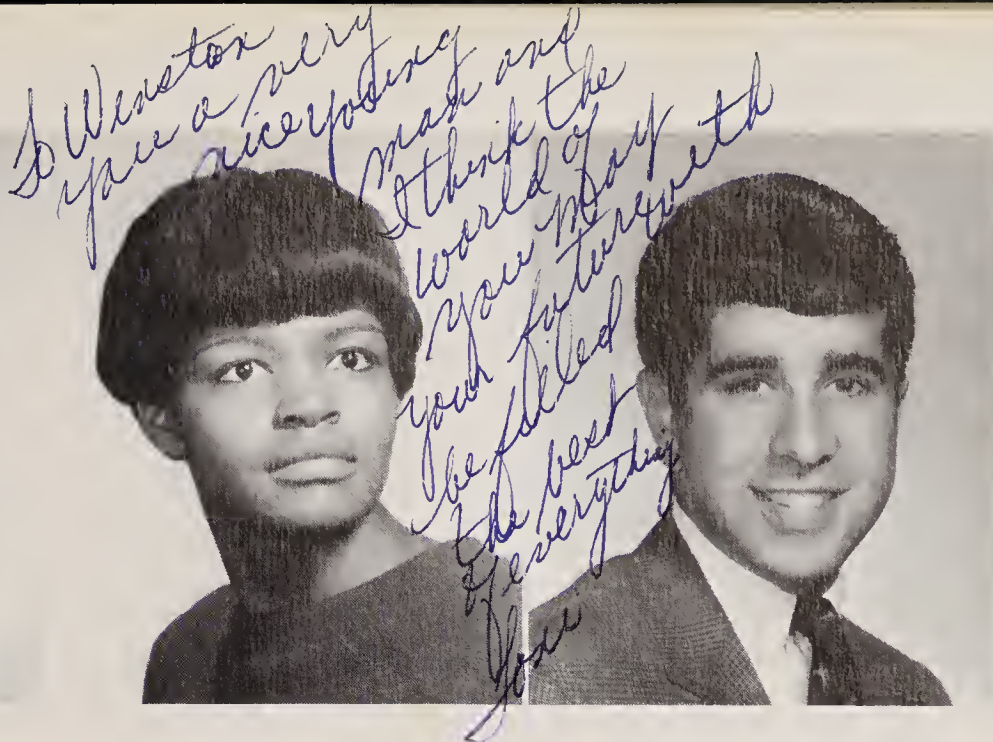 To Winston
your a very
nice young
man and
I think the
world of
you May
your future
be filled with
the best
of everything